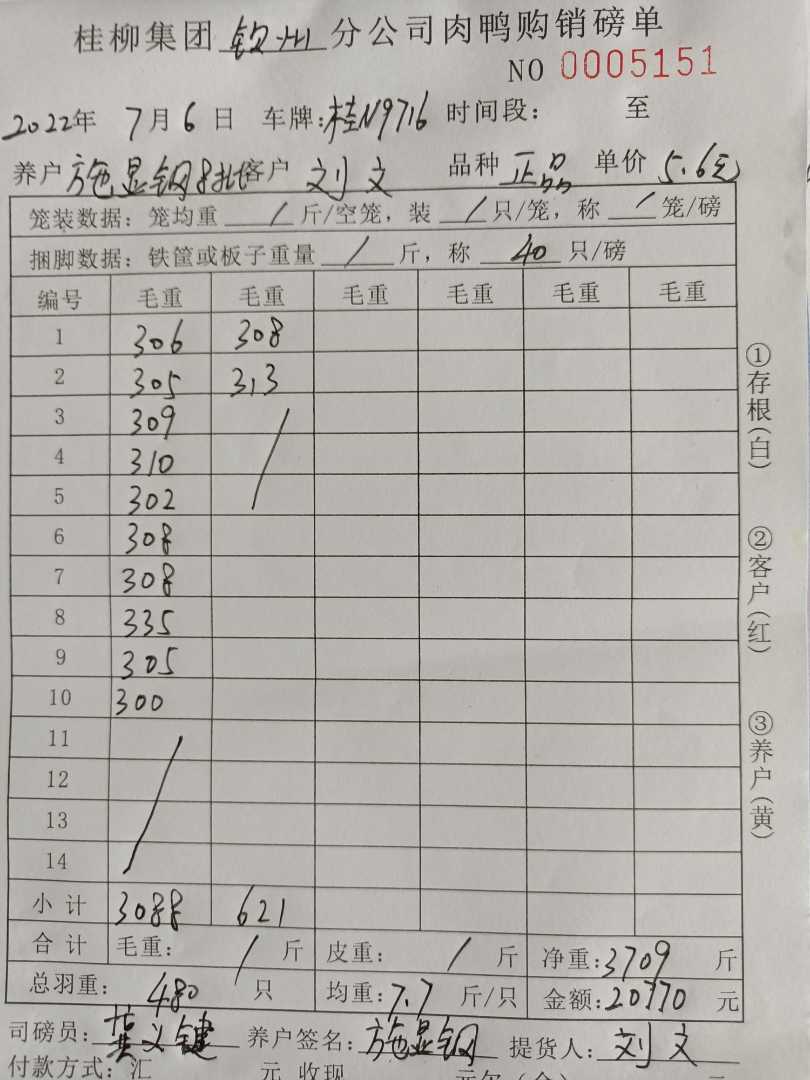 桂柳集团钦州分公司肉鸭购销磅单
NO 0005151
2022年 7月6日 车牌:桂N9716 时间段: 至
养户施显钢8批客户 刘文 品种 正品 单价 5.6元
笼装数据: 笼均重 / 斤/空笼, 装 / 只/笼, 称 / 笼/磅
捆脚数据: 铁筐或板子重量 / 斤, 称 40 只/磅
编号 毛重 毛重 毛重 毛重 毛重 毛重
1 306 308
2 305 313
3 309
4 310
5 302
6 308
7 308
8 335
9 305
10 300
11
12
13
14
小计 3088 621
合计 毛重: / 斤 皮重: / 斤 净重:3709 斤
总羽重: 480 只 均重:7.7 斤/只 金额:20770 元
司磅员:龚义键 养户签名:施显钢 提货人:刘文
付款方式: 汇 元 收现 元欠(余) 元
①存根(白)
②客户(红)
③养户(黄)